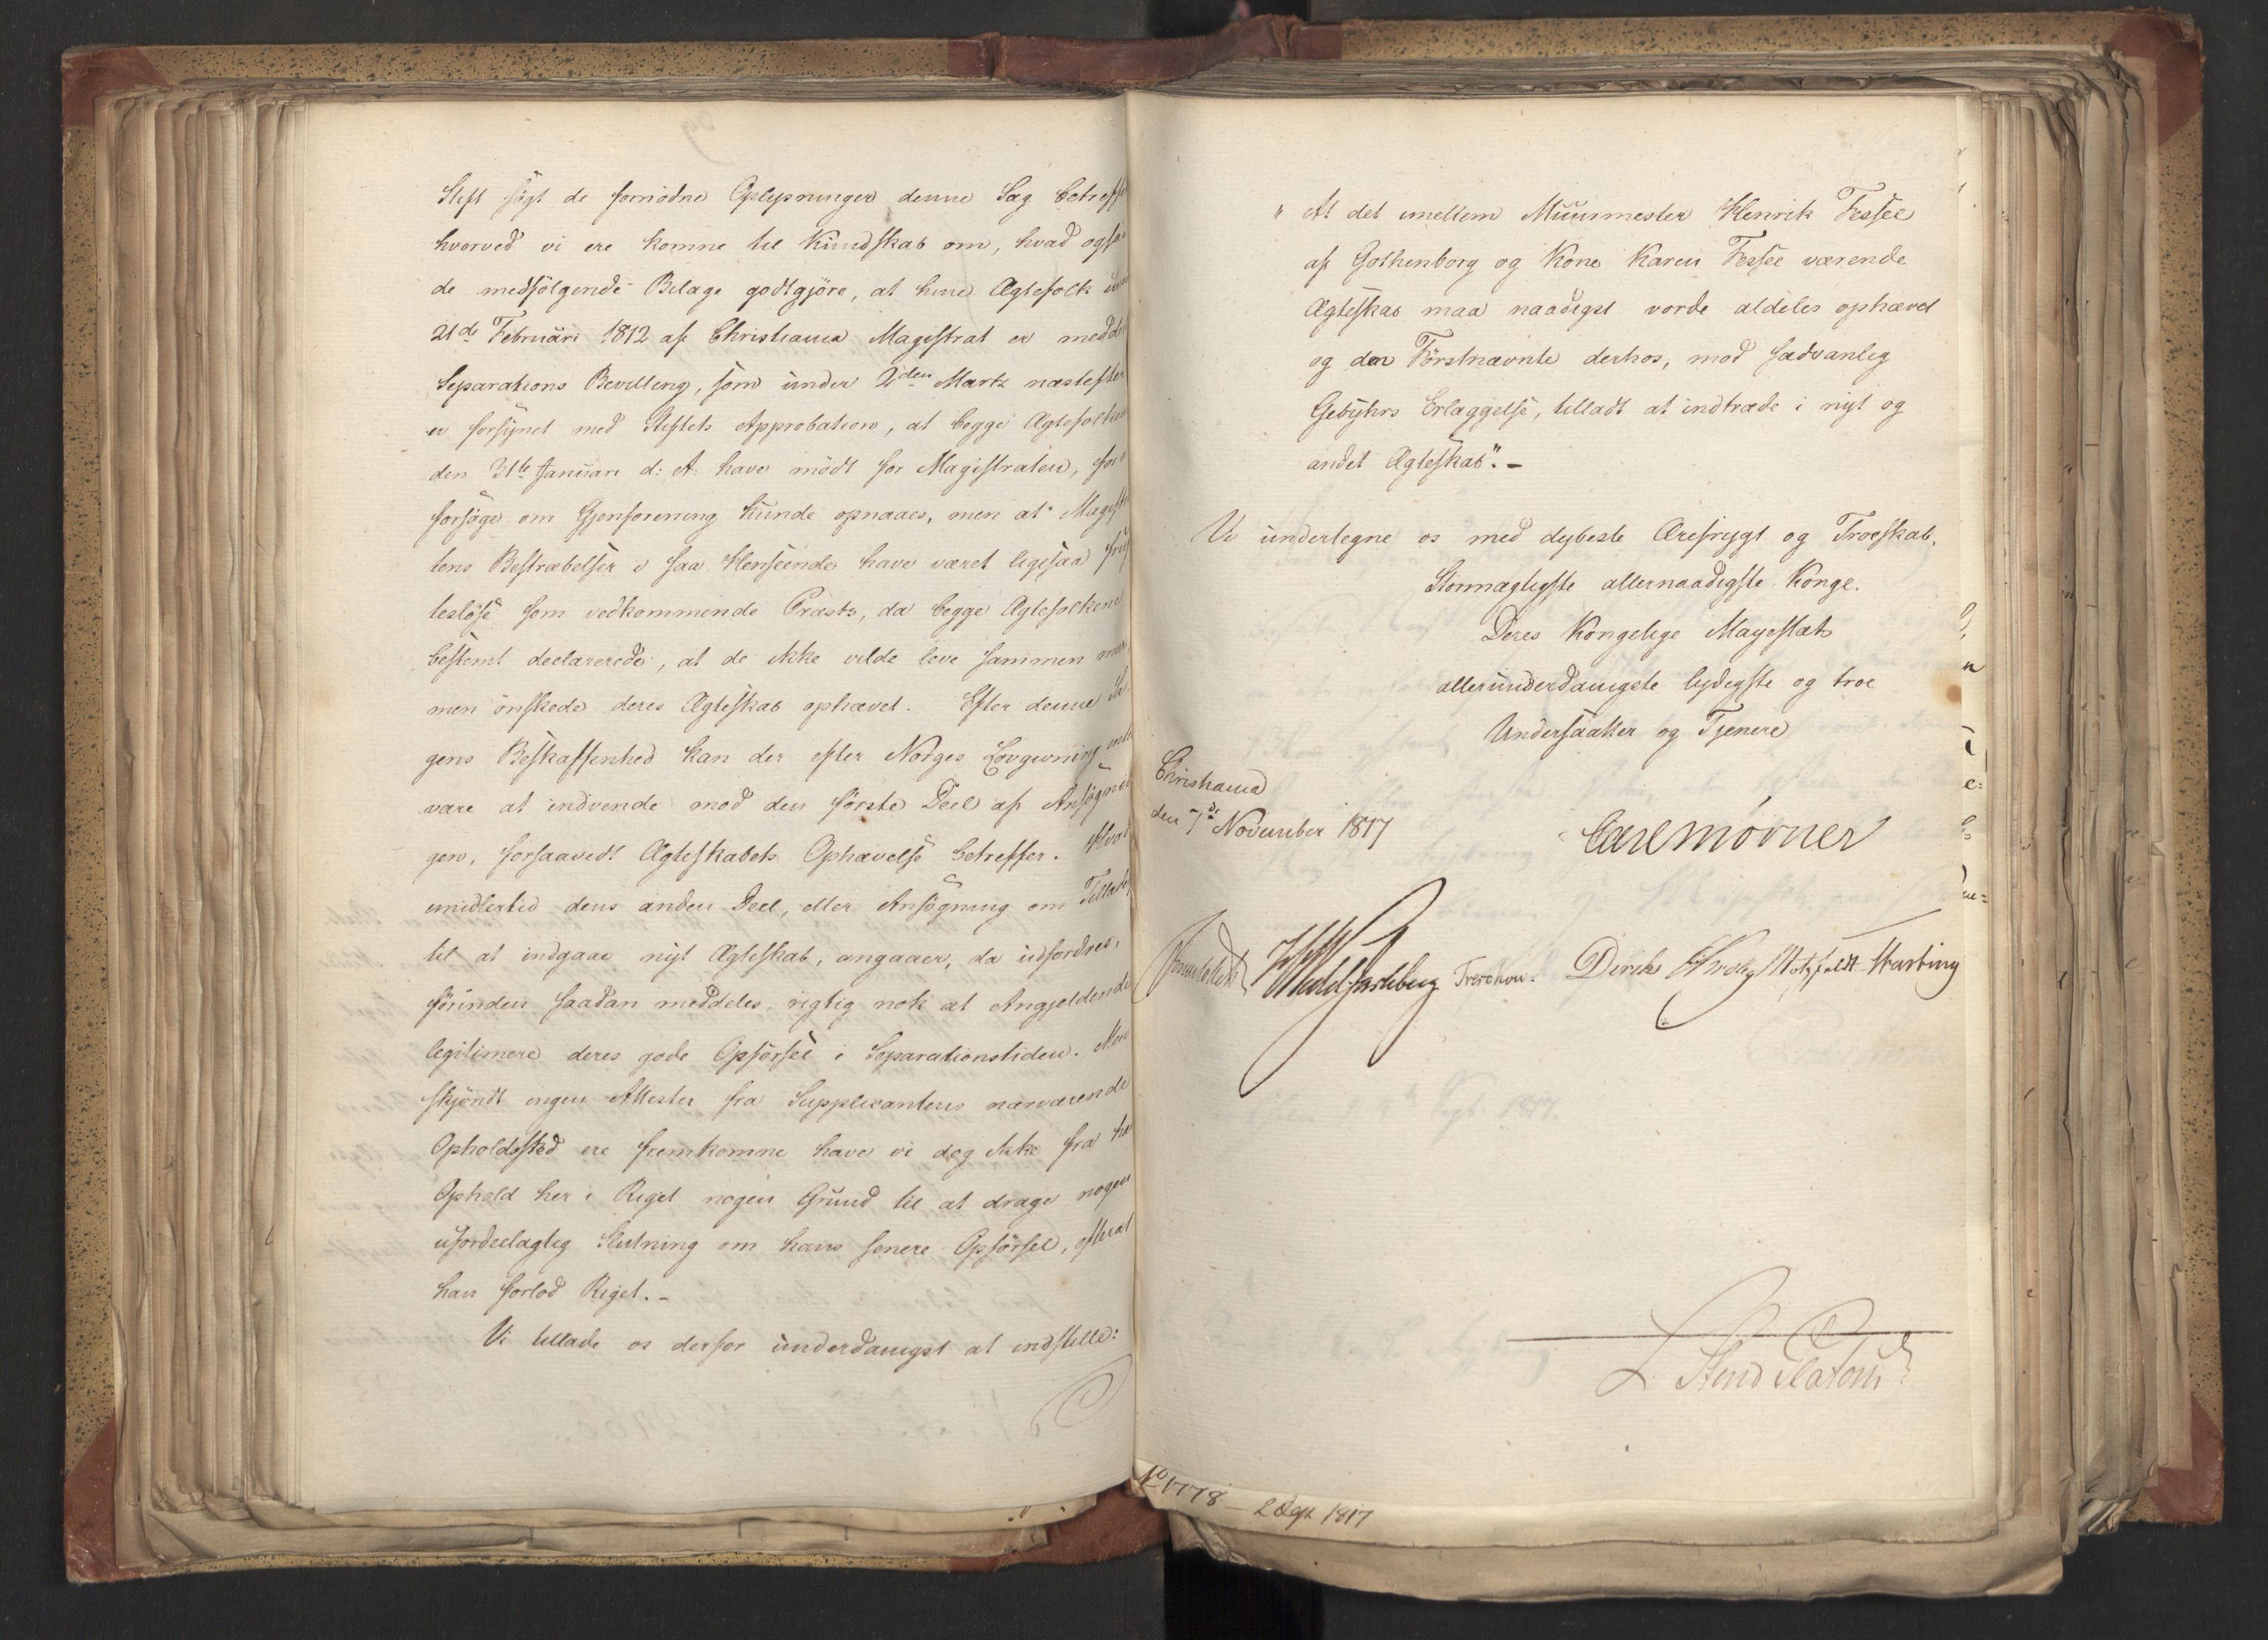 Stift søgt de fornødne Oplysninger denne Sag betreff
hvorved vi ere komne til Kundskab om, hvad ogsaa
de medfølgende Bilage godtgjøre, at hine Ægtefolk under
21de Februari 1812 af Christiania Magistrat er meddelt
Separations Bevilling, som under 2den Martz næstefter
er forsynet med Stiftets Approbation, at begge Ægtefolkene
den 31te Januari d: A: have mødt for Magistraten, for
forsøge om Gjenforening kunde opnaaes, men at Magistra
tens Bestræbelser i saa Henseende have været ligesaa frug
tesløse som vedkommende Præsts, da begge Ægtefolkene
bestemt declarerede, at de ikke vilde leve sammen mere
men ønskede deres Ægteskab ophævet. Efter denne Sa
gens Beskaffenhed kan der efter Norges Lovgivning intet
være at indvende mod den første Deel af Ansøgnin
gen, forsaavidt Ægteskabets Ophævelse betreffer. Hvad
imidlertid dens anden Deel, eller Ansøgning om Tilladelse
til at indgaae nyt Ægteskab, angaaer, da udfordres,
førinden saadan meddeles, rigtig nok at Angjeldende
legitimere deres gode Opførsel i Separationstiden. Men
skjøndt ingen Attester fra Supplicantens nærværende
Opholdssted ere fremkomne have vi dog ikke fra hans
Ophold her i Riget nogen Grund til at drage nogen
ufordeelagtig Slutning om hans senere Opførsel, efterat
han forlod Riget. -
Vi tillade os derfor underdanigst at indstille:
" At det imellem Muurmester Henrik Fessel
af Gothenborg og Kone Karen Fessel værende
Ægteskab maa naadigst vorde aldeles ophævet
og den Førstnævnte derhos, mod sædvanlig
Gebyhrs Erlæggelse, tilladt at indtræde i nyt og
andet Ægteskab". -
Vi undertegne os med dybeste Ærefrygt og Troeskab.
Stormægtigste allernaadigste Konge.
Deres Kongelige Mayestæts
allerunderdanigste lydigste og troe
Undersaatter og Tjenere
Christiania
den 7de November 1817
Carl Mörner
Sommerhielm Wedel Jarlsberg Treschow. Diriks Krog Motzfeldt Hartung
L. Stud Platou
No 1778 - 2 Dep 1817